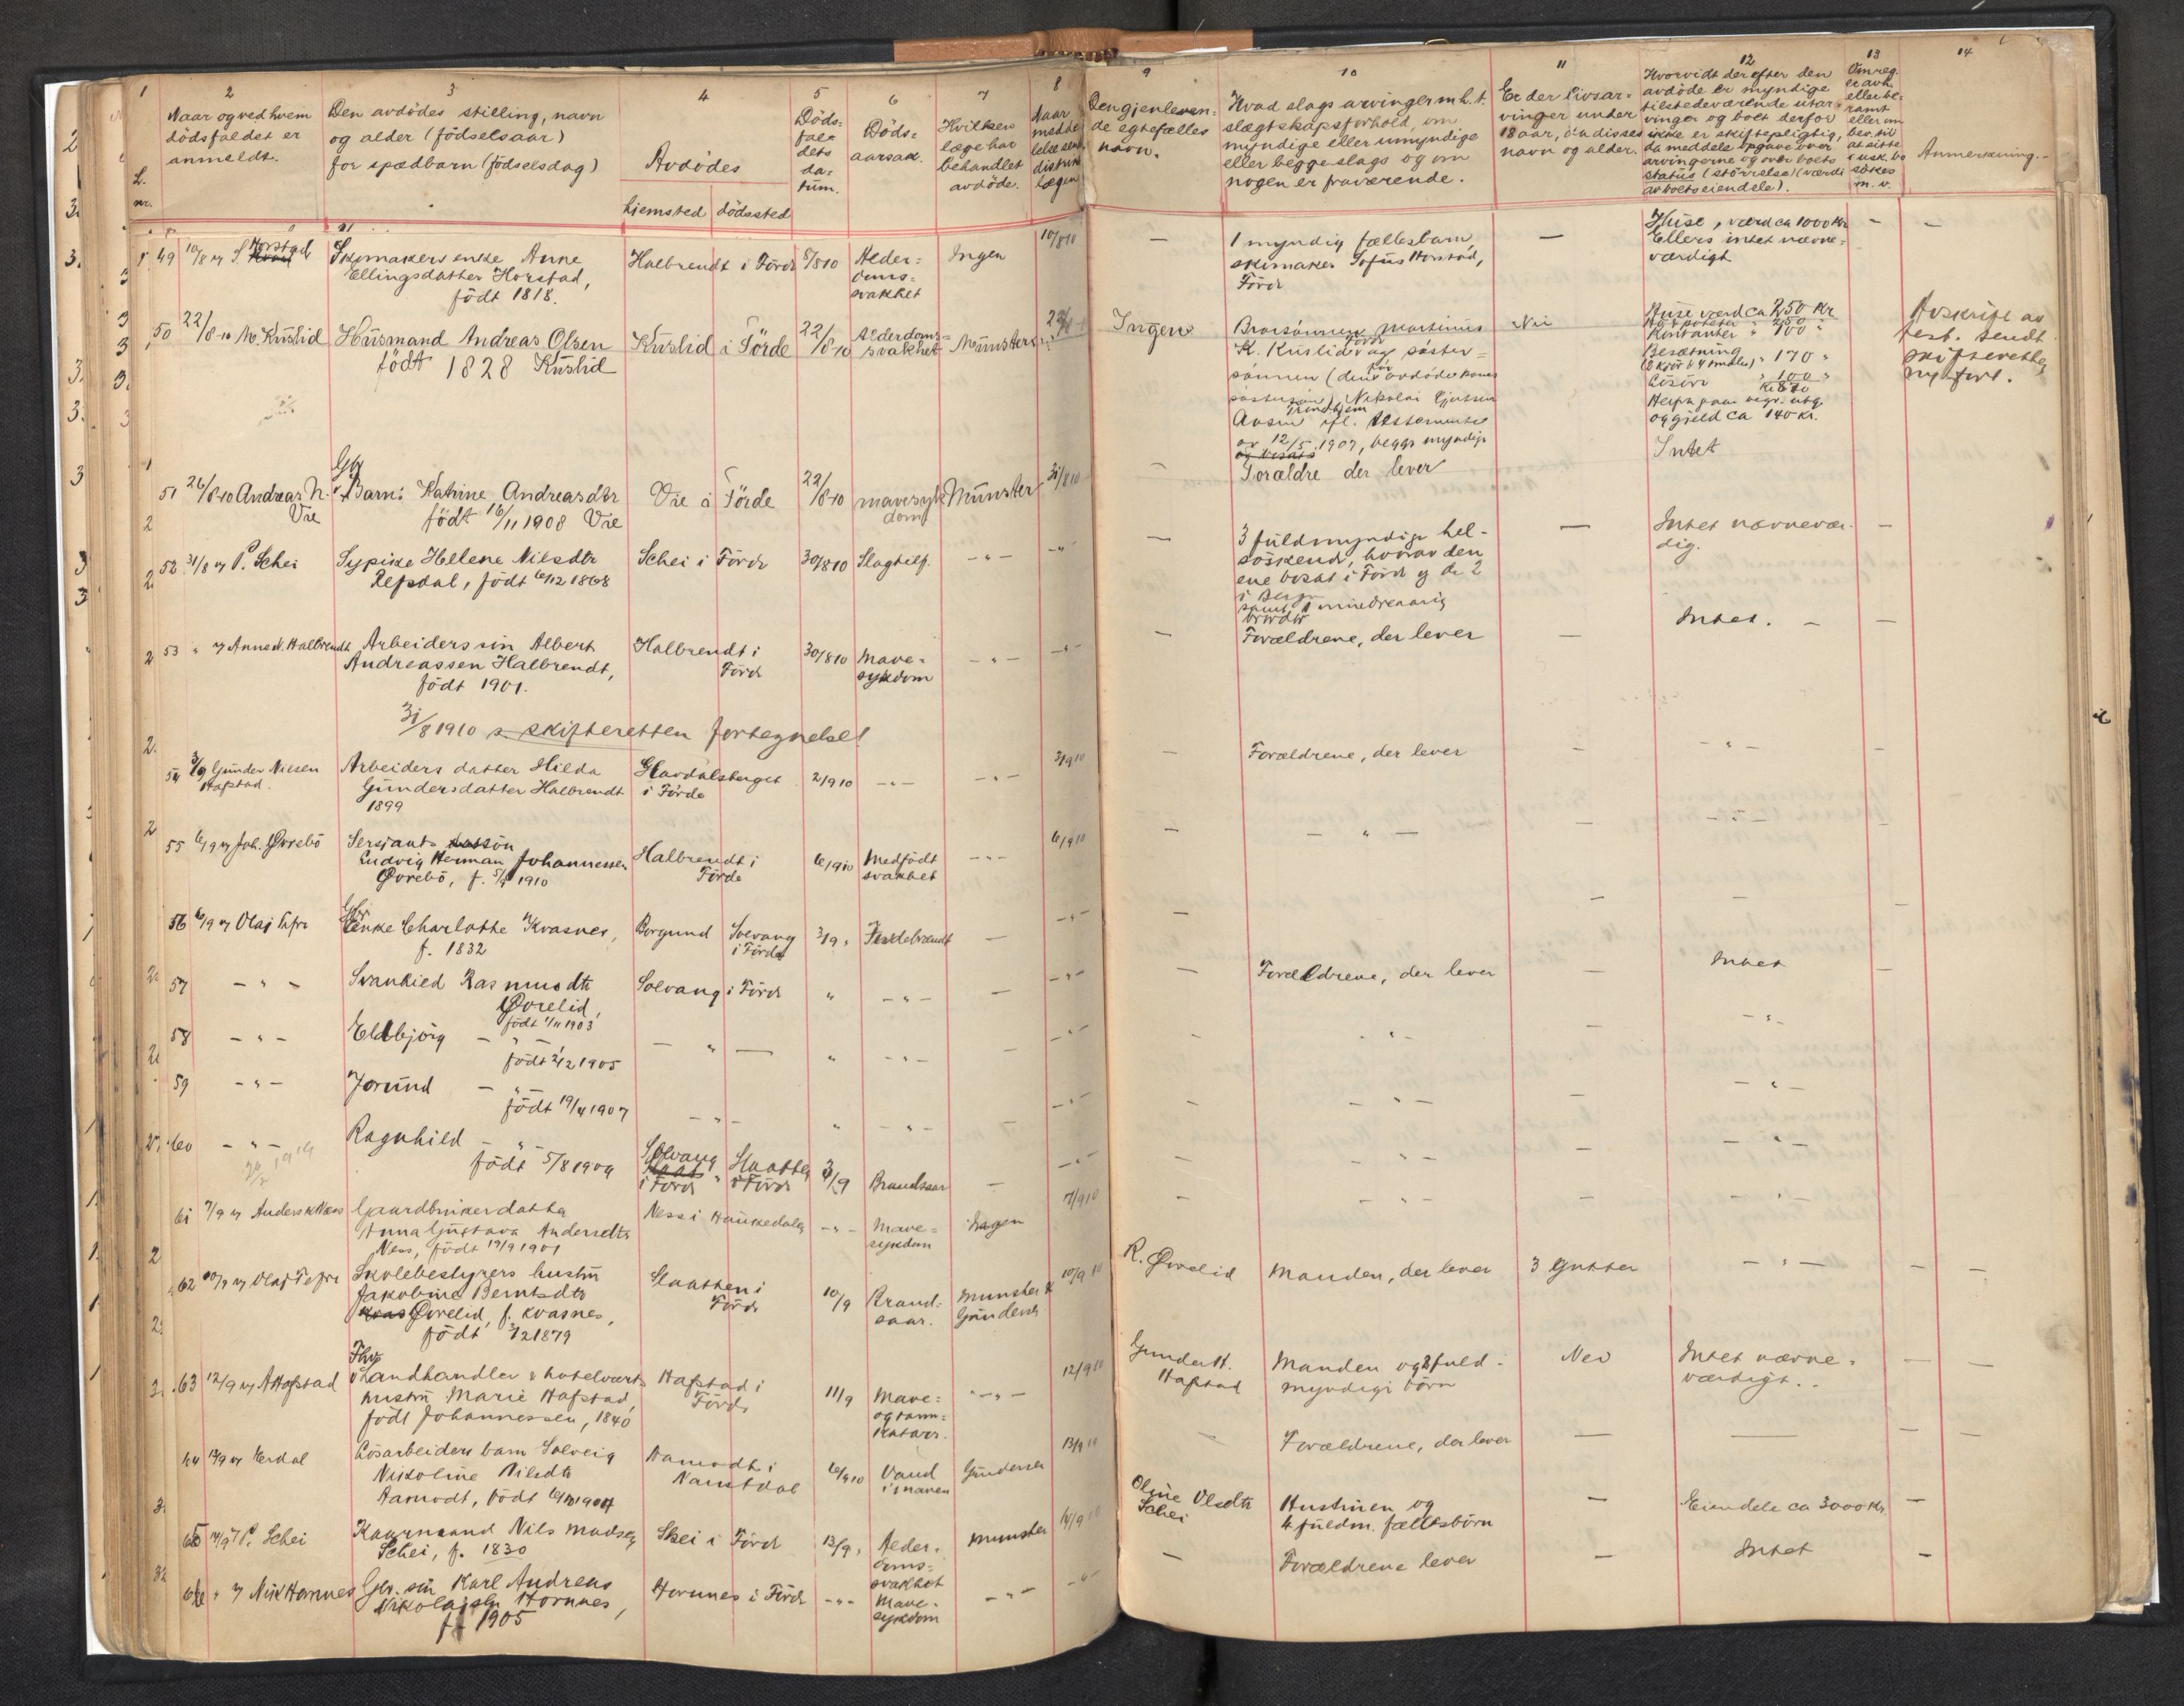 1
2
3
4
5
6
7
8
L.
nr.
Naar og ved hvem
dödsfaldet er
anmeldt.
Den avdödes stilling, navn
og alder (födselsaar)
for spædbarn (födselsdag)
Avdödes
hjemsted dödssted
Döds=
fal=
dets
da=
tum.
Döds=
aarsak.
Hvilken
læge har
behandlet
avdöde.
Naar
medde
lelse sen
distrikts
lægen
49 10/8 ved S. Horstad
Skomakers enke Anne
Ellingsdatter Horstad,
födt 1818.
Halbrendt i Förde
8/8 10
Alder=
doms=
svakhet
Ingen
10/8 10
50 22/8-10 M. Kuslid
Husmand Andreas Olsen
födt 1828 Kuslid
Kuslid i Förde
22/8-10
Alderdoms=
svakhet
Münster
51 26/8-10 Andreas N.
Vie
Gbr
Barn: Katrine Andreasdtr
födt 16/11 1908 Vie
Vie i Förde
22/8-10
mavesyk
dom
Münster
31/8 10
52 31/8 P. Schei
Sypike Hellene Nilsdtr
Refsdal, födt 6/12 1868
Schei i Förde
30/8 10
Slagtilf.
- " -
- " -
53 " Anne Halbrendt
Arbeiders sön Albert
Andreassen Halbrendt,
födt 1901.
Halbrendt i
Förde
30/8 10
Mave=
sykdom
- " -
- " -
31/8 1910 s. skifteretten fortegnelse
54 3/9 Gunder Nilsen
Hafstad.
Arbeiders datter Hilda
Gundersdatter Halbrendt
1899
i Förde
2/9 10
- " -
- " -
3/9 10
55 6/9 Joh. Øvrebö
Sersjants sön
Ludvig Herman Johannessen
Øvrebö, f. 5/9 1910
Halbrendt i
Förde
6/9 10
Medfödt
svakhet
- " -
6/9 10
56 6/9 Olaj
Gbr
Enke Charlotte Kvasnes,
f. 1832
Borgund
Solvang
i Förde
3/9 "
Indebrændt
-
- " -
57 - " -
Svanhied Rasmusdtr
Øvrelid,
födt 1/11 1903
Solvang i Förde
"
- " -
-
- " -
58 - " -
Eldbjörg - " -
födt 2/12 1905
- " -
"
- " -
-
- " -
59 - " -
Jorund - " -
födt 19/4 1907
- " -
"
- " -
-
- " -
60 - " -
Ragnhild - " -
födt 5/8 1909
Solvang
i Förde
Slaatten
i Förde
3/9
Brandsaar
-
- " -
61 7/9 Anders Næss
Gaardbrukerdatter
Anna Gustava Andersdtr
Ness, födt 19/9 1901
Ness i Haukedalen
- " -
Mave=
sykdom
Ingen
7/9 10
62 10/9 Olaj
Skolebestyrers hustru
Jakobine Berntsdtr
Øvrelid, f. Kvasnes,
födt 3/2 1879
Slaatten i
Förde
10/9
Brand=
saar.
Munster &
Gundersen
10/9 10
63 12/9 A Hafstad
Landhandler & hotelværts
hustru Marie Hafstad,
födt Johannessen, 1840
Hafstad i
Förde
11/9
Mave=
og tarm=
katarr.
- " -
12/9 10
64 13/9 Erdal
Lösarbeiders barn Solveig
Nikoline Nilsdtr
Aamodt
Aamodt i
Naustdal
6/9 10
Vand
i maven
Gundersen
13/9 10
65 14/9 P. Schei
Kaarmand Nils Madsen
Schei, f. 1830
Skei i Förde
13/9 "
Alder=
doms=
svakhet
Munster
14/9 10
66 " Nik Hornnes
Gbr. sön Karl Andreas
Nikolajsen Hornnes,
f. 1905
Hornnes i Förde
- " -
Mave=
sykdom
- " -
- " -
9
10
11
12
13
14
Den gjenleven=
de egtefælles
navn.
Hvad slags arvinger m.h.t.
slægtskapsforhold, om
myndige eller umyndige
eller begge slags og om
nogen er fraværende.
Er der livsar=
vinger under
18 aar, da disses
navn og alder.
Hvorvidt der efter den
avdöde er myndige
tilstedeværende utar=
vinger og boet derfor
ikke er skiftepligtig,
da meddele opgave over
arvingerne og over boets
status (störrelse) (værdi
av boets eiendele).
Om reg.
er avh.
eller be=
ramt
eller om
bev. til
at sitte
i usk. bo
sökes
m. v.
Anmerkning.-
-
1 myndig fællesbarn,
skomaker Sofus Horstad,
Förde
-
Huse, værd ca 1000 Kr
Ellers intet nævne=
værdigt
-
-
Ingen
Brorsönnen Martinus
K. Kuslid Förde og söster=
sönnen (den avdöde kones
söstersön) Nikolai Gjertsen
ifl. testamente
av 12/5 1907, begge myndige
Nei
Huse værd ca 250 Kr
Kontanter " 100 "
Besætning " 170 "
Lösöre " 100 "
Kr 870
og gjeld ca 140 Kr.
Avskrift av
test. sendt
skifteretten
-
Forældre der lever
Intet
-
3 fuldmyndige hel-
söskende, hvorav den
ene bosat i Förde og de 2
i Bergen
samt 1 mindreaarig
-
Intet nævnevær-
dig.
-
-
Forældrene, der lever
-
Intet. -
-
-
Forældrene, der lever
-
- " -
-
-
- " -
-
- " -
-
-
-
-
-
-
Forældrene, der lever
-
Intet
-
- " -
-
- " -
-
- " -
-
- " -
-
- " -
-
- " -
-
- " -
-
- " -
R. Øvrelid
Manden, der lever
3 gutter
- " -
-
-
Gunder H.
Hafstad
Manden og 2 fuld=
myndige börn
Nei
Intet nævne=
værdigt.
-
-
-
Forældrene, der lever
-
-
-
-
Oline Olsdtr
Schei
Hustruen og
4 fuldm. fællesbörn
-
Eiendele ca 3000 Kr.
-
-
Forældrene lever
-
Intet
-